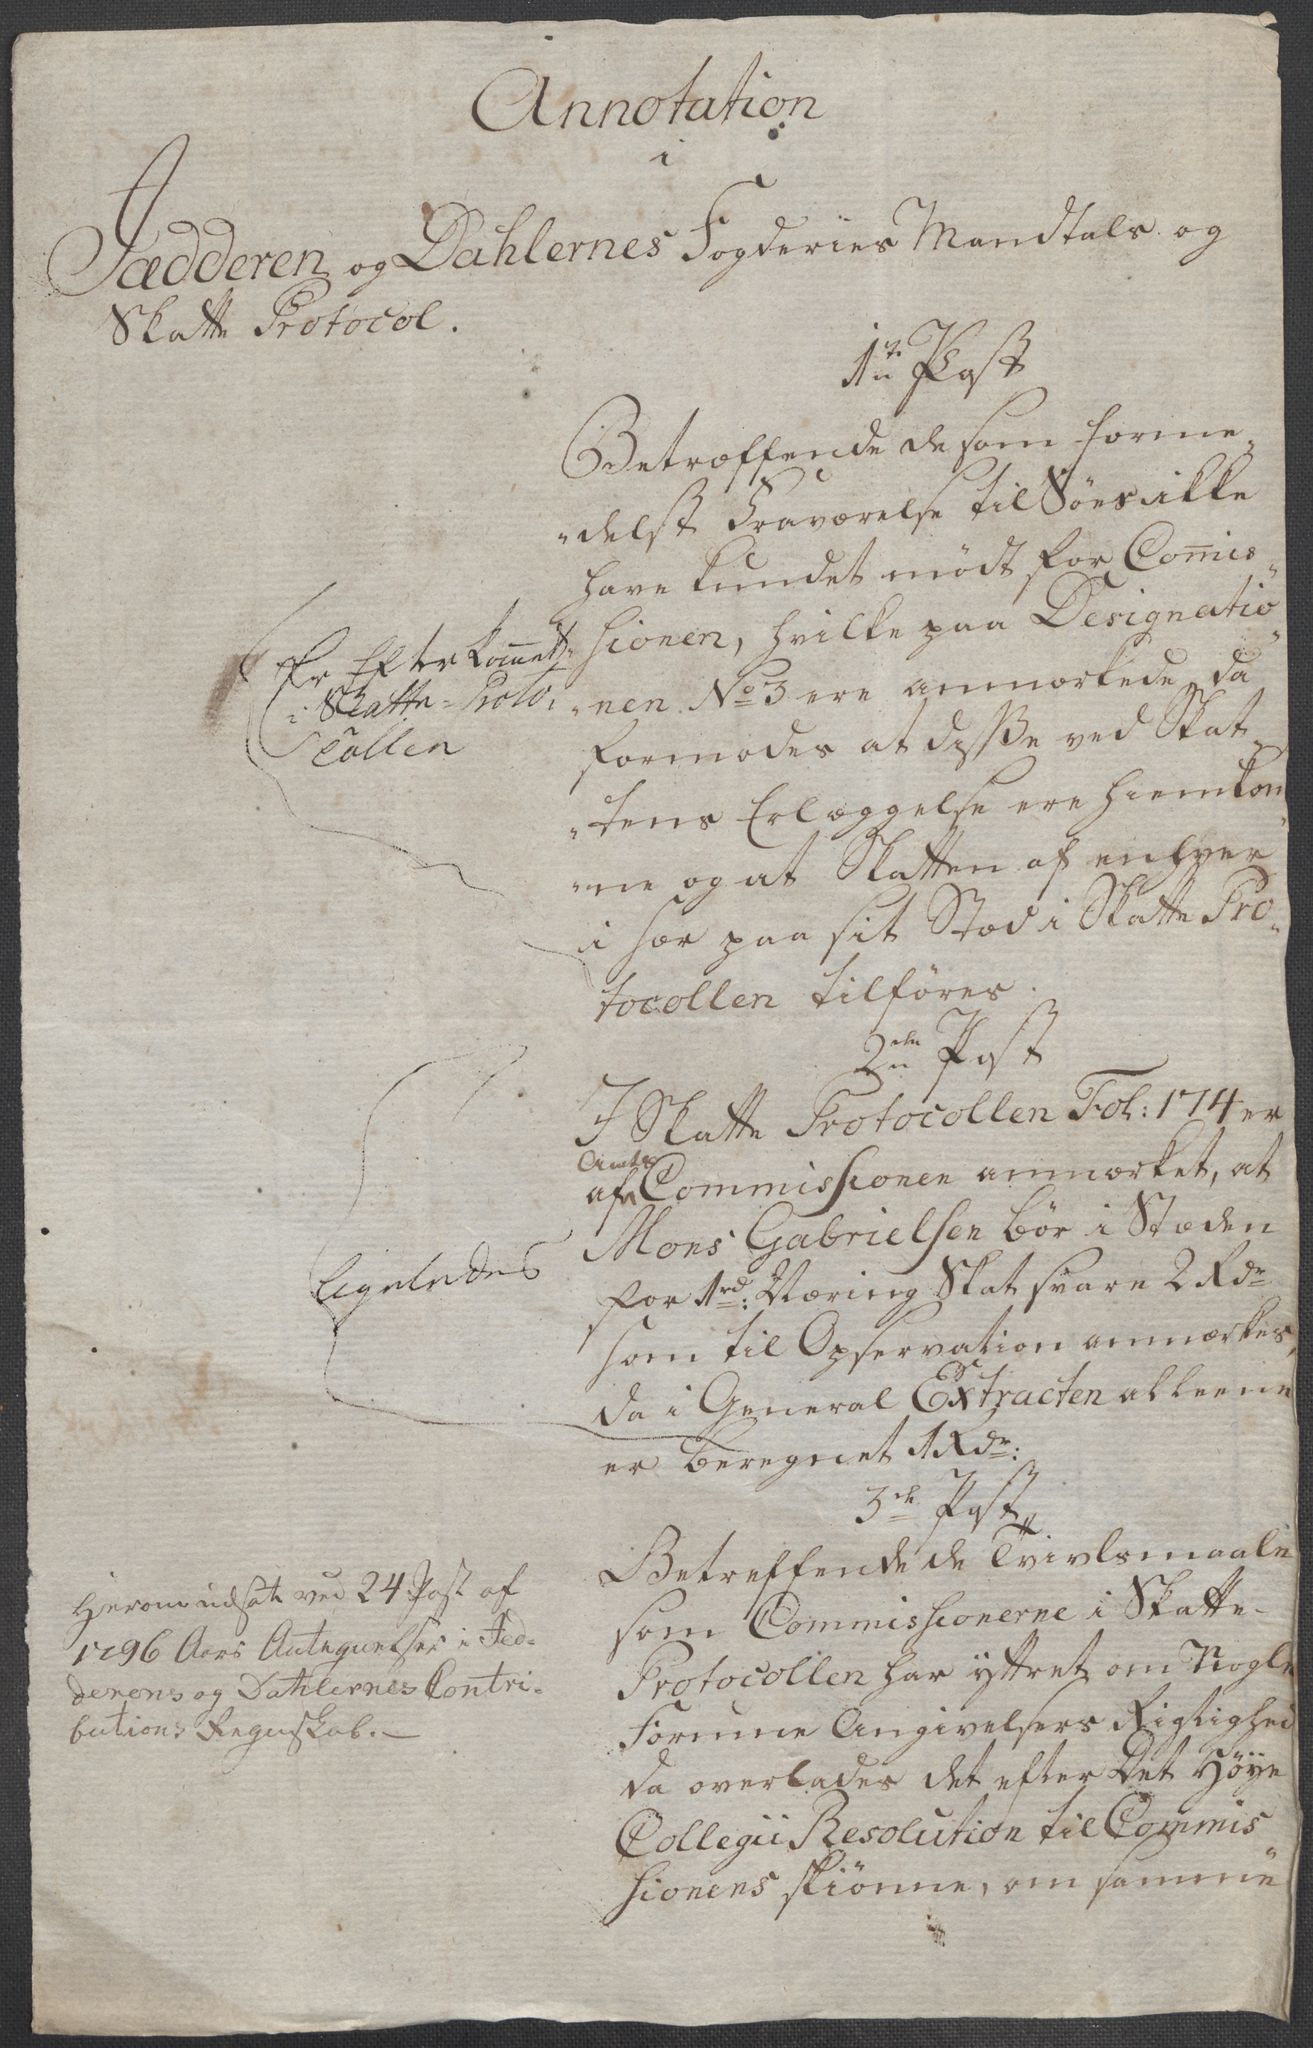 Annotation
i
Jædderen og Dahlernes Fogderies Mandtals og
Skatte Protocol.
1te Post
Betræffende de som forme„
„delst Fraværelse til Söes ikke
have kundet mödt for Com̄is„
sionen, hvilke paa Designatio„
„nen No 3 ere anmærkede, da
formodes at disse ved Skat„
„tens Erlæggelse ere hiemkom„
„ne og at Skatten af enhver
i sær paa sit Stæd i Skatte Pro„
tocollen tilföres.
Er Efterkommet
i Skatte-Proto-
collen
2den Post
I Skatte Protocollen Fol: 174 er
af Amts Commissionen anmærket, at
Mons Gabrielsen bör i Stæden
for 1rd: Næring Skat svare 2 Rdr
som til Opservation anmærkes,
da i General Extracten alleene
er beregnet 1 Rdr:
Ligeledes
3de Post
Betreffende de Tvivlsmaale
som Commissionerne i Skatte-
Protocollen har yttret om Nogle
Formue Angivelsers Rigtighed
da overlades det efter Det Höye
Collegii Resolution til Commis„
sionens skiönne, om samme
Hierom udsat ved 24 Post af
1796 Aars Antegnelser i Jed-
derens og Dahlernes Contri-
butions Regnskab.